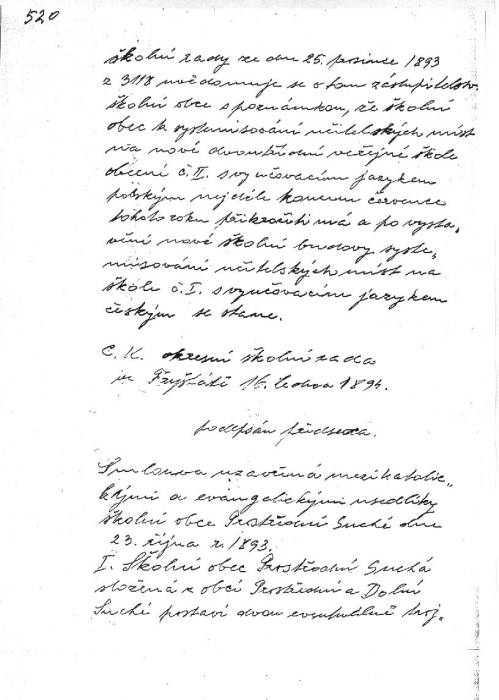 520
školní rady ze dne 25. prosince 1893
z 3118 uvědomuje se o tom zastupitelstvo
školní obce s poznámkou, že školní
obec k systemisování učitelských míst
na nové dvoutřídní veřejné škole
obecní č. II. s vyučovacím jazykem
polským nejdéle koncem července
tohoto roku přikročiti má a po vysta„
vění nové školní budovy syste„
misování učitelských míst na
škole č. I. s vyučovacím jazykem
českým se stane.
C. K. okresní školní rada
ve Fryštátě 16. ledna 1894.
podepsán předseda.
Smlouva uzavřená mezi katolic„
kými a evangelickými usedlíky
školní obce Prostřední Suché dne
23. října r. 1893.
I. Školní obec Prostřední Suchá
složená z obcí Prostřední a Dolní
Suché postaví dvou eventuelně troj„